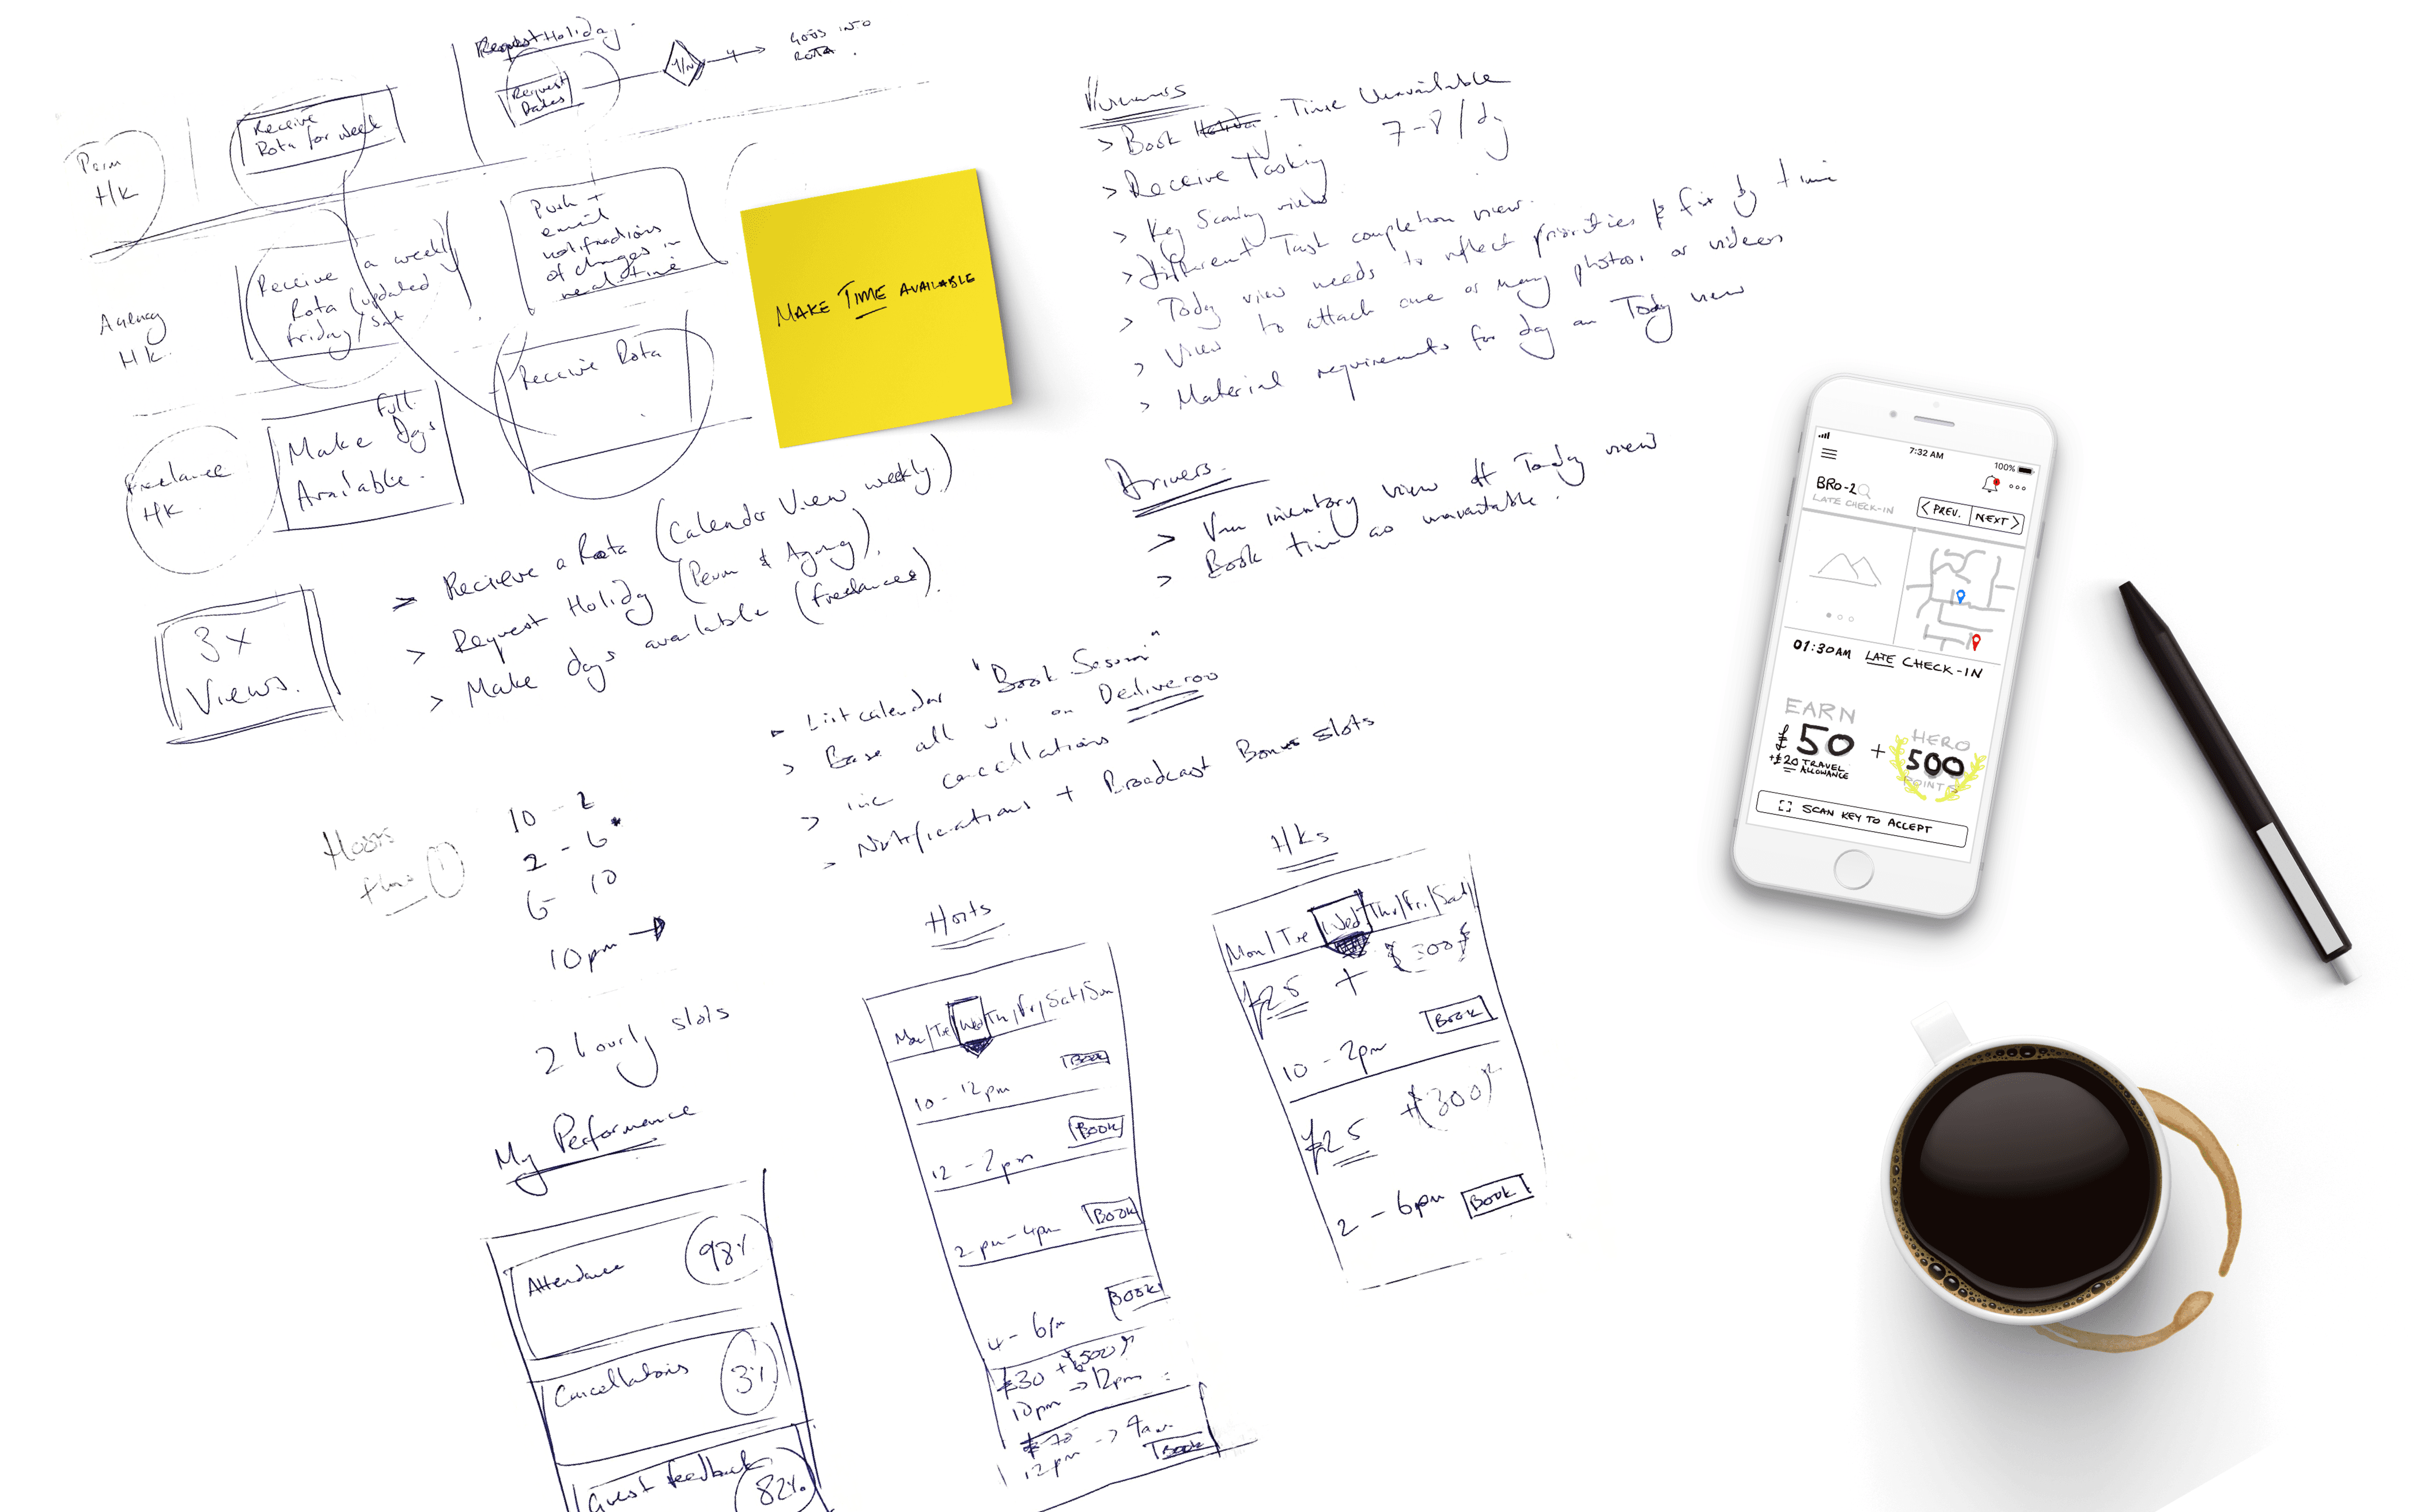 Request Holiday.
Request
Dates
Y/N
Y
GOES INTO
ROTA.
Perm
H/K
Receive
Rota for week
Agency
H/K.
Receive a weekly
Rota (updated
Friday/Sat
Push +
email
notifications
of changes in
real time
Freelance
H/K.
Make Full
Days
Available.
Receive Rota
MAKE TIME AVAILABLE
3x
Views.
> Recieve a Rota (Calender View weekly)
> Request Holidy (Perm & Agency).
> Make days available (freelances).
> Book Holiday. Time Unavailable
> Receive Tasking 7-8/dy
> Key Scanning view
> Different Task completion view.
> Today view needs to reflect priorities & fix by time
> View to attach one or many photos, or videos
> Material requirements for day on Today view
Drivers.
> Van inventory view off Today view
> Book time as unavailable.
> List calendar "Book Session"
> Base all on Deliveroo
> inc cancellations
> Notifications + Broadcast Bonus slots
10 - 2
2 - 6
6 - 10
10pm →
2 hourly slots
My Performance
Attendance 98%
Cancellations 3%
Guest feedback 82%
Hosts
Mon/Tue/Wed/Thu/Fri/Sat/Sun
BOOK
10 - 12pm
BOOK
12 - 2pm
BOOK
2pm - 4pm
BOOK
4 - 6pm
£30 + (500)
10pm → 12pm
£70
12pm → 4am
BOOK
H/Ks
Mon/Tue/Wed/Thu/Fri/Sat/
£25 + (300)
BOOK
10 - 2pm
£25 + (300)
2 - 6pm BOOK
7:32 AM
100%
BRO-2
LATE CHECK-IN
< PREV.
NEXT >
01:30AM LATE CHECK-IN
EARN
£50
+£20 TRAVEL
ALLOWANCE
+
HERO
500
POINTS
SCAN KEY TO ACCEPT